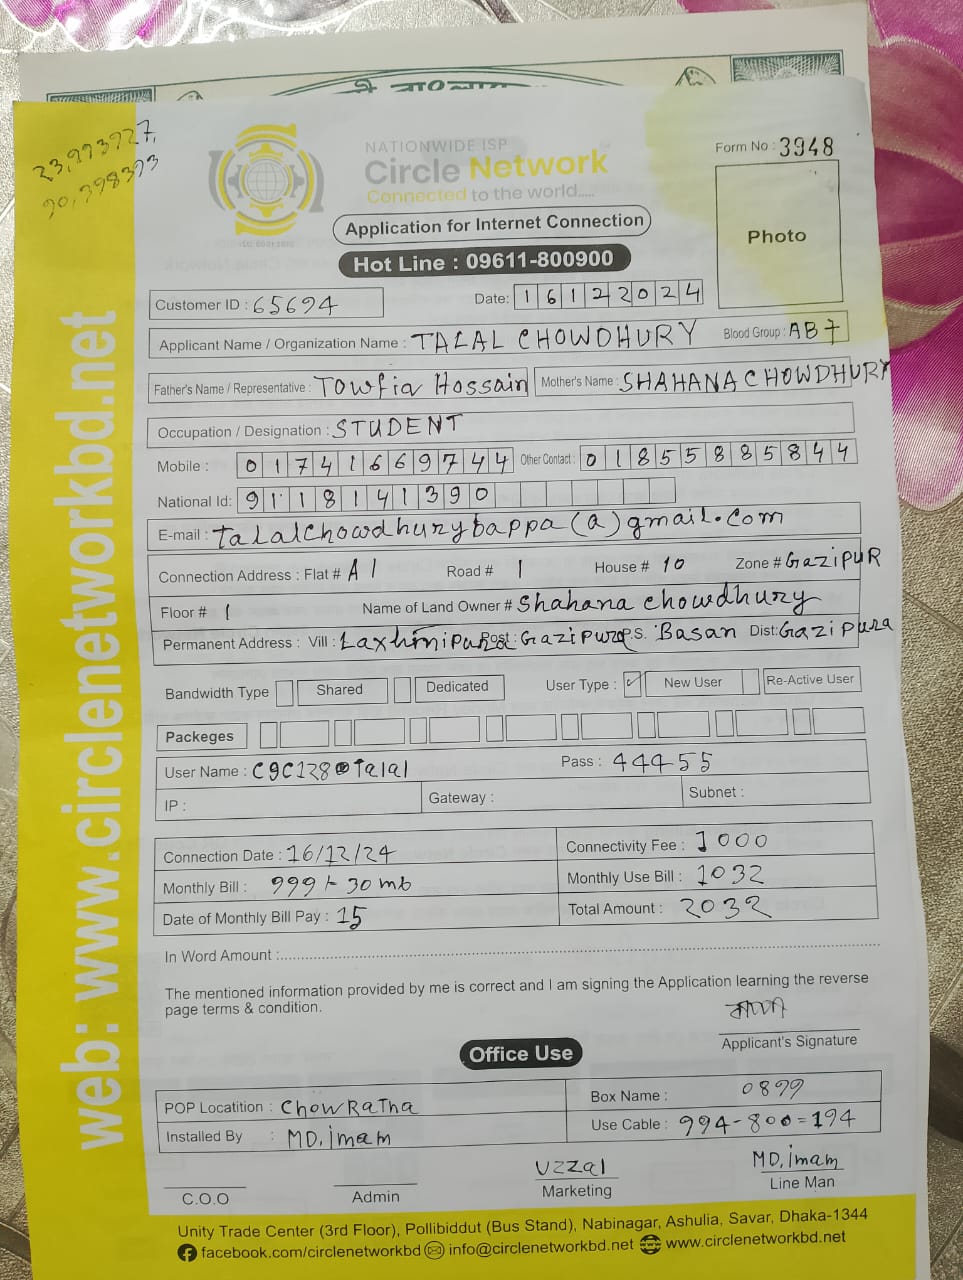 23,973727,
90,398393
NATIONWIDE ISP
Circle Network
Connected to the world.....
Form No : 3948
Application for Internet Connection
Hot Line : 09611-800900
Photo
Customer ID : 65694 Date: 16122024
Applicant Name / Organization Name : TALAL CHOWDHURY Blood Group : AB+
Father's Name / Representative : Towfia Hossain Mother's Name : SHAHANA CHOWDHURY
Occupation / Designation : STUDENT
Mobile : 01741669744 Other Contact : 01855885844
National Id: 9118141390
E-mail : talalchowdhurybappa(a)gmail.com
Connection Address : Flat # A1 Road # 1 House # 10 Zone # GazipuR
Floor # 1 Name of Land Owner # Shahana chowdhury
Permanent Address : Vill : Laxhmipura Post : Gazipura P.S. Basan Dist: Gazipura
Bandwidth Type Shared Dedicated User Type : ✓ New User Re-Active User
Packeges
User Name : C9C128@Talal Pass : 44455
IP : Gateway : Subnet :
Connection Date : 16/12/24 Connectivity Fee : 1000
Monthly Bill : 999/- 30 mb Monthly Use Bill : 1032
Date of Monthly Bill Pay : 15 Total Amount : 2032
In Word Amount :
The mentioned information provided by me is correct and I am signing the Application learning the reverse
page terms & condition.
Applicant's Signature
Office Use
POP Locatition : ChowRaTha Box Name : 0899
Installed By : MD, imam Use Cable : 994-800=194
Uzzal MD, imam
C.O.O Admin Marketing Line Man
Unity Trade Center (3rd Floor), Pollibiddut (Bus Stand), Nabinagar, Ashulia, Savar, Dhaka-1344
facebook.com/circlenetworkbd info@circlenetworkbd.net www.circlenetworkbd.net
web: www.circlenetworkbd.net